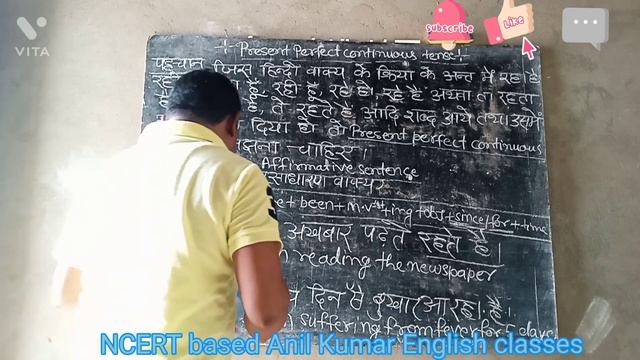 VITA
subscribe
Like
-:- Present perfect continuous tense -:-
पहचान जिस हिन्दी वाक्य के क्रिया के अन्त में रहा है
रही हूँ, रहे हो, रहे हैं अथवा ता रहता
है ते रहते हैं आदि शब्द आये तथा उसमें
दिया हो तो Present perfect continuous
चाहिए।
Affirmative sentence
साधारण वाक्य
+ been + m.v + ing + obj + since/for + time
अखबार पढ़ते रहते हैं।
reading the newspaper
दिन से बुखार आ रहा है।
suffering from fever for days
NCERT based Anil Kumar English classes